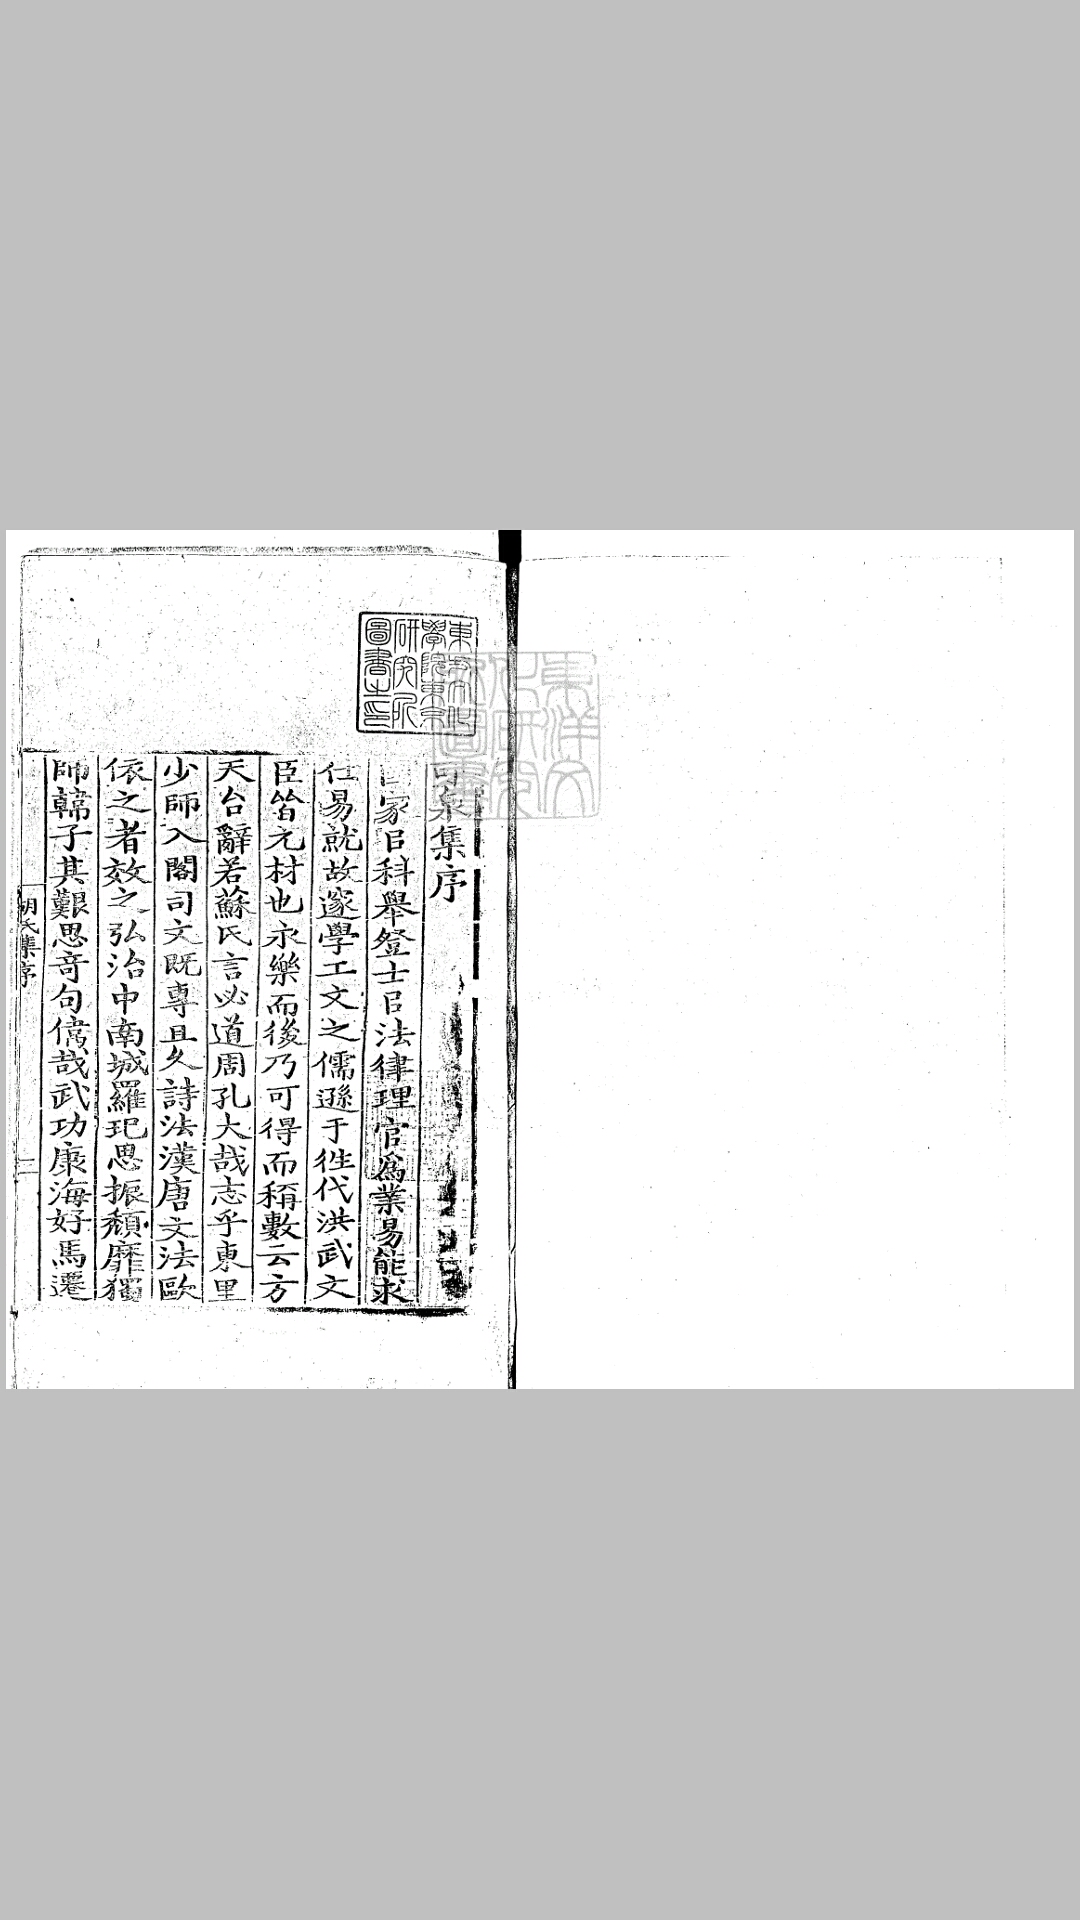 可泉集序
國家㠯科舉登士㠯法律理官爲業易能求
仕易就故邃學工文之儒遜于徃代洪武文
臣皆元材也永樂而後乃可得而稱數云方
天台辭若蘇氏言必道周孔大哉志乎東里
少師入閣司文旣專且久詩法漢唐文法歐
依之者效之弘治中南城羅玘思振頹靡獨
師韓子其艱思奇句偉哉武功康海好馬遷
胡氏集序
東方文化
學院東京
研究所
圖書之印
東洋文
化研究
所圖書